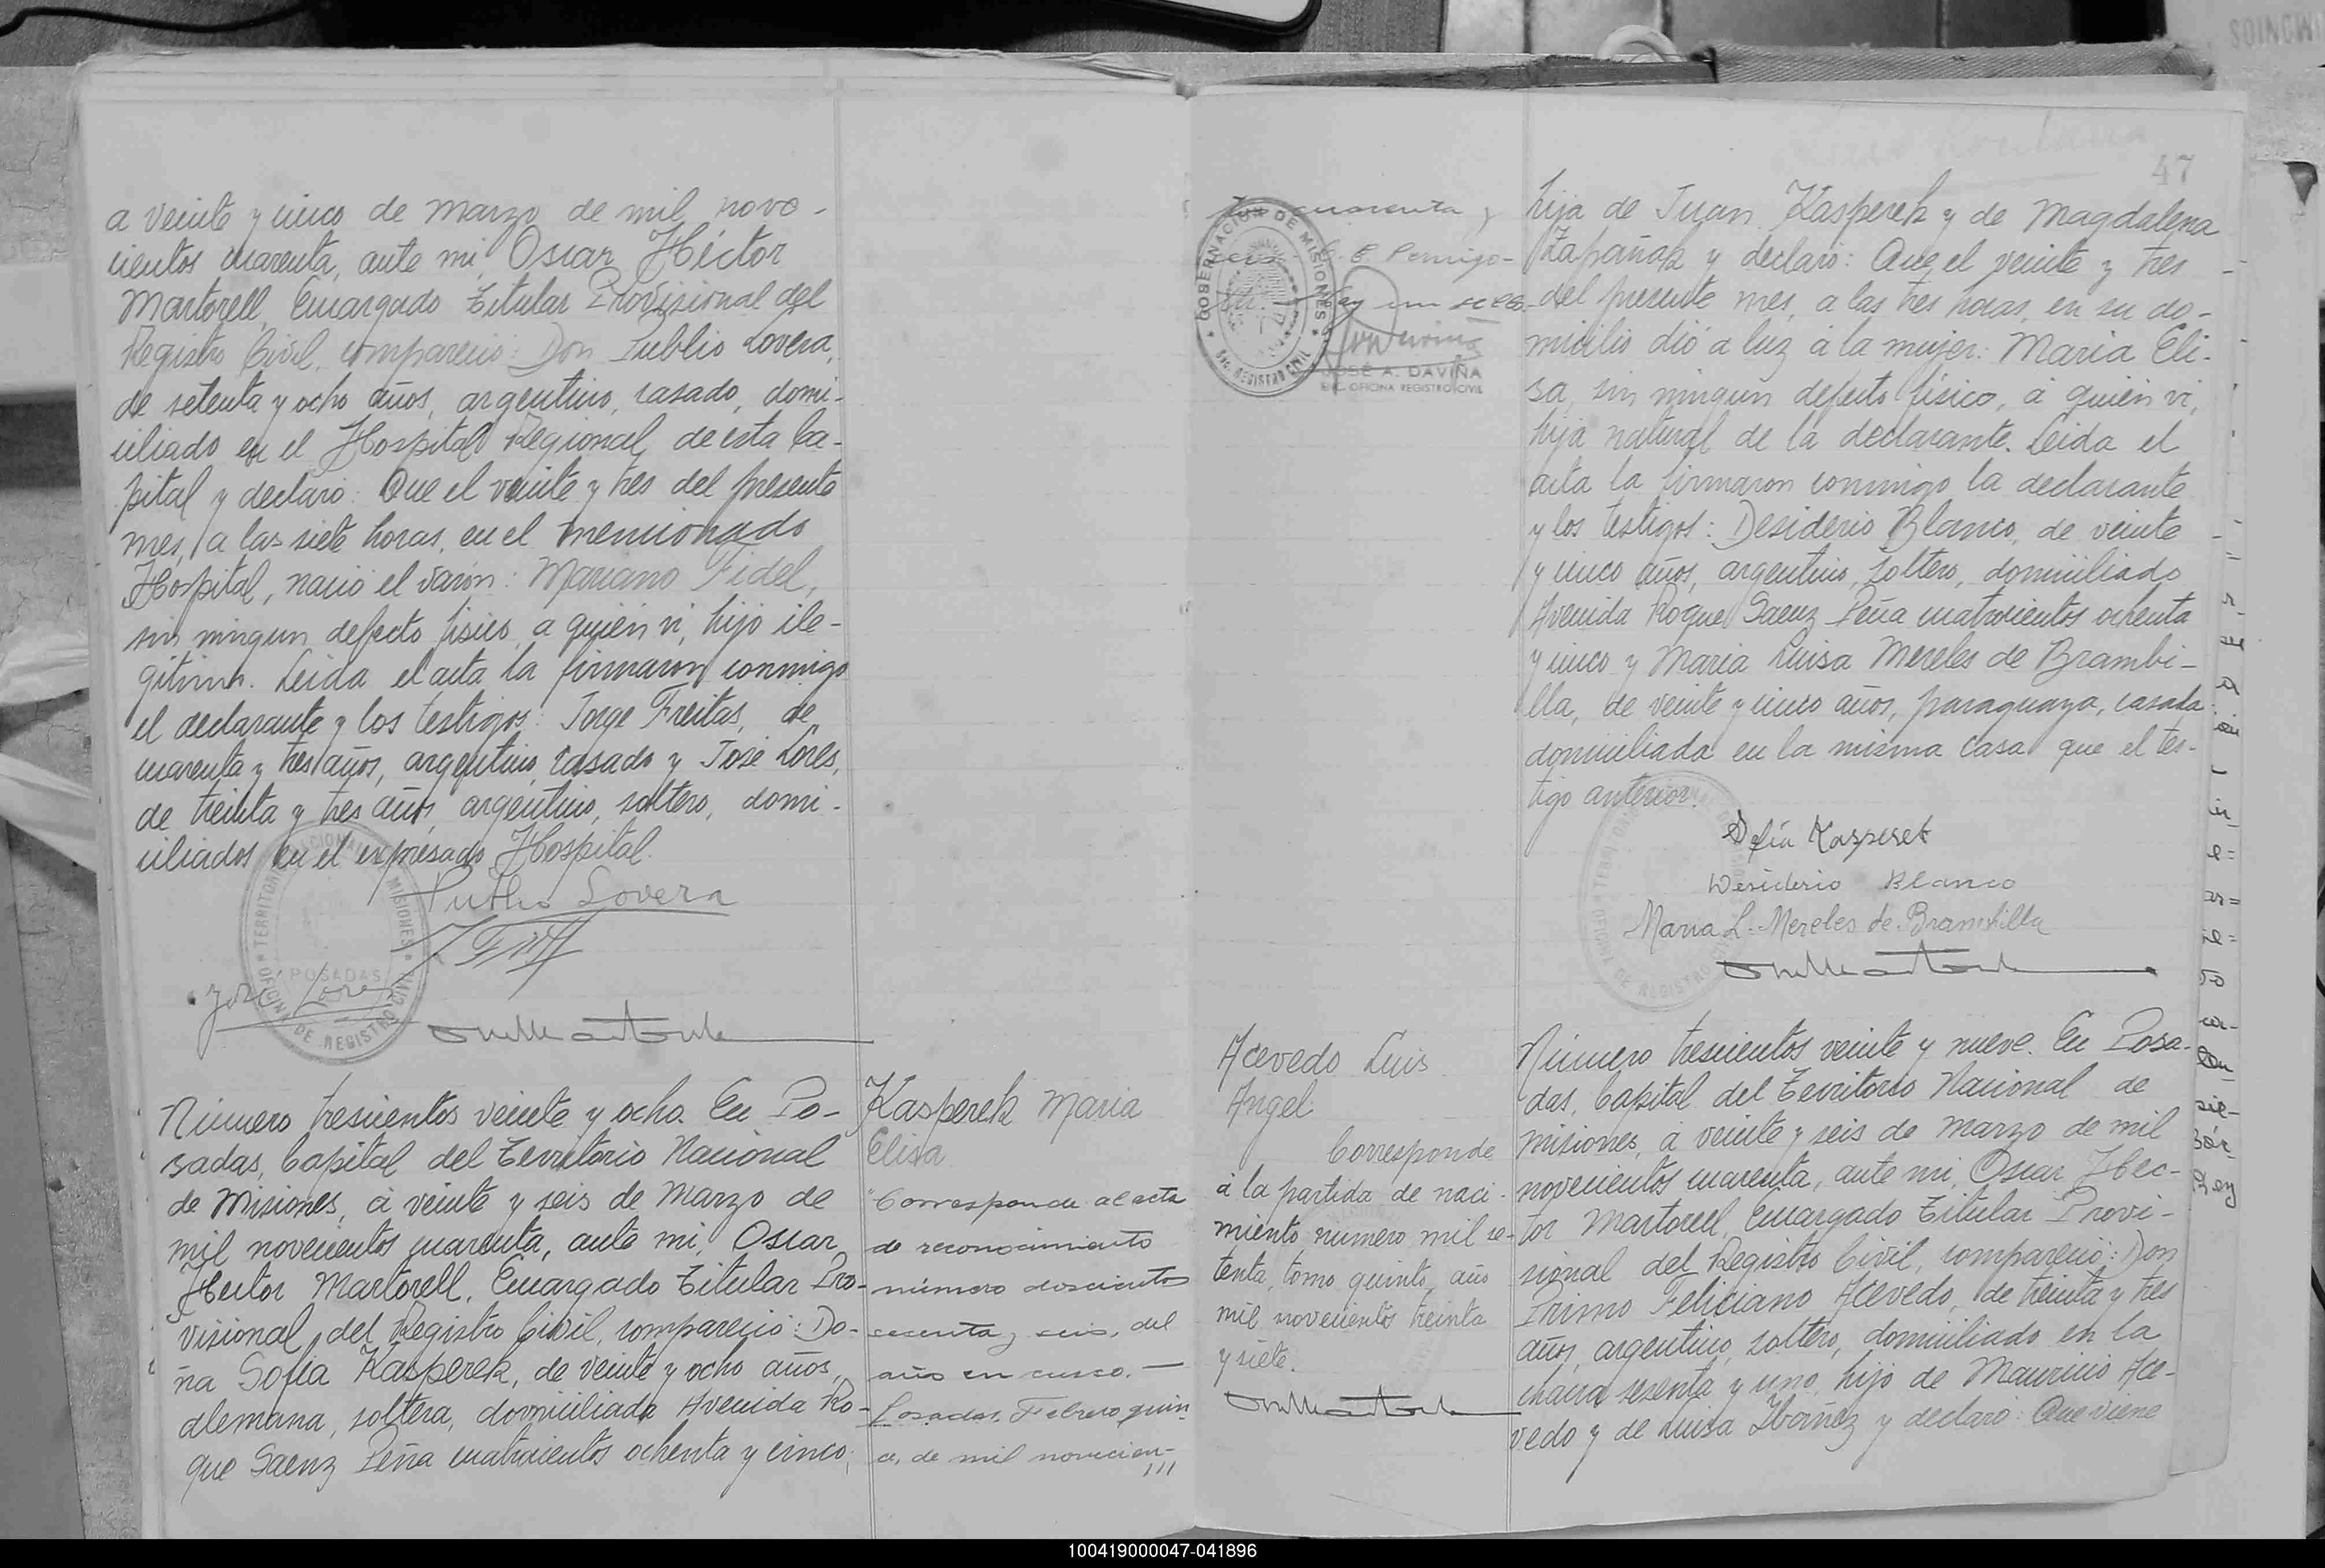 a veinte y cinco de marzo de mil nove-
cientos cuarenta, ante mi, Oscar Héctor
Martorell, Encargado Titular Provisional del
Registro Civil, compareció: Don Publio Lovera,
de setenta y ocho años, argentino, casado, domi-
ciliado en el Hospital Regional, de esta Ca-
pital y declaró: Que el veinte y tres del presente
mes, a las siete horas, en el mencionado
Hospital, nació el varón: Mariano Fidel,
sin ningun defecto físico, a quién ví, hijo ile-
gitimo. Leida el acta la firmaron conmigo
el declarante y los testigos: Jorge Freitas, de
cuarenta y tres años, argentino, casado y José Lores,
de treinta y tres años, argentino, soltero, domi-
ciliados en el expresado Hospital.
Publio Lovera
José Lores
TERRITORIO NACIONAL MISIONES
POSADAS
OFICINA DE REGISTRO CIVIL
Número trescientos veinte y ocho. En Po-
sadas, Capital del Territorio Nacional
de Misiones, á veinte y seis de Marzo de
mil novecientos cuarenta, ante mi, Oscar
Hector Martorell, Encargado Titular Pro-
visional del Registro Civil, compareció: Do-
ña Sofía Kasperek, de veinte y ocho años,
alemana, soltera, domiciliada Avenida Ro-
que Saenz Peña cuatrocientos ochenta y cinco,
Kasperek Maria
Elisa
"Corresponde al acta
de reconocimiento
número doscientos
sesenta y seis, del
año en curso. —
Posadas, Febrero quin-
ce, de mil novecien-
///
cuarenta y
seis.
Hay un sello
GOBERNACION DE MISIONES
ENC. REGISTRO CIVIL
JOSÉ A. DAVIÑA
ENC. OFICINA REGISTRO CIVIL
47
hija de Juan Kasperek y de Magdalena
Kapañak y declaró: Que el veinte y tres
del presente mes, a las tres horas, en su do-
micilio dió a luz á la mujer: Maria Eli-
sa, sin ningún defecto físico, á quién ví,
hija natural de la declarante. Leida el
acta la firmaron conmigo la declarante
y los testigos: Desiderio Blanco, de veinte
y cinco años, argentino, soltero, domiciliado
Avenida Roque Saenz Peña cuatrocientos ochenta
y cinco y Maria Luisa Mereles de Brambi-
lla, de veinte y cinco años, paraguaya, casada
domiciliada en la misma casa que el tes-
tigo anterior.
Sofía Kasperek
Desiderio Blanco
Maria L. Mereles de Brambilla
Acevedo Luis
Angel
Corresponde
á la partida de naci-
miento numero mil se-
tenta, tomo quinto, año
mil novecientos treinta
y siete.
Número trescientos veinte y nueve. En Posa-
das, Capital del Territorio Nacional de
Misiones, á veinte y seis de Marzo de mil
novecientos cuarenta, ante mi, Oscar Hec-
tor Martorell, Encargado Titular Provi-
sional del Registro Civil, compareció: Don
Primo Feliciano Acevedo, de treinta y tres
años, argentino, soltero, domiciliado en la
chacra sesenta y uno, hijo de Mauricio Ace-
vedo y de Luisa Ibañez y declaró: Que viene
100419000047-041896